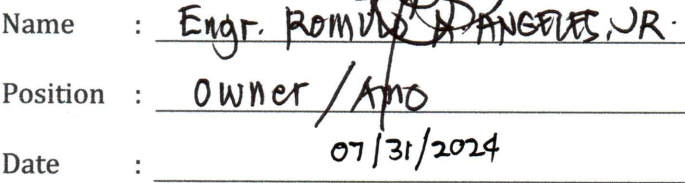 Name : Engr. ROMULO A. ANGELES, JR.
Position : Owner / AMO
Date : 07/31/2024